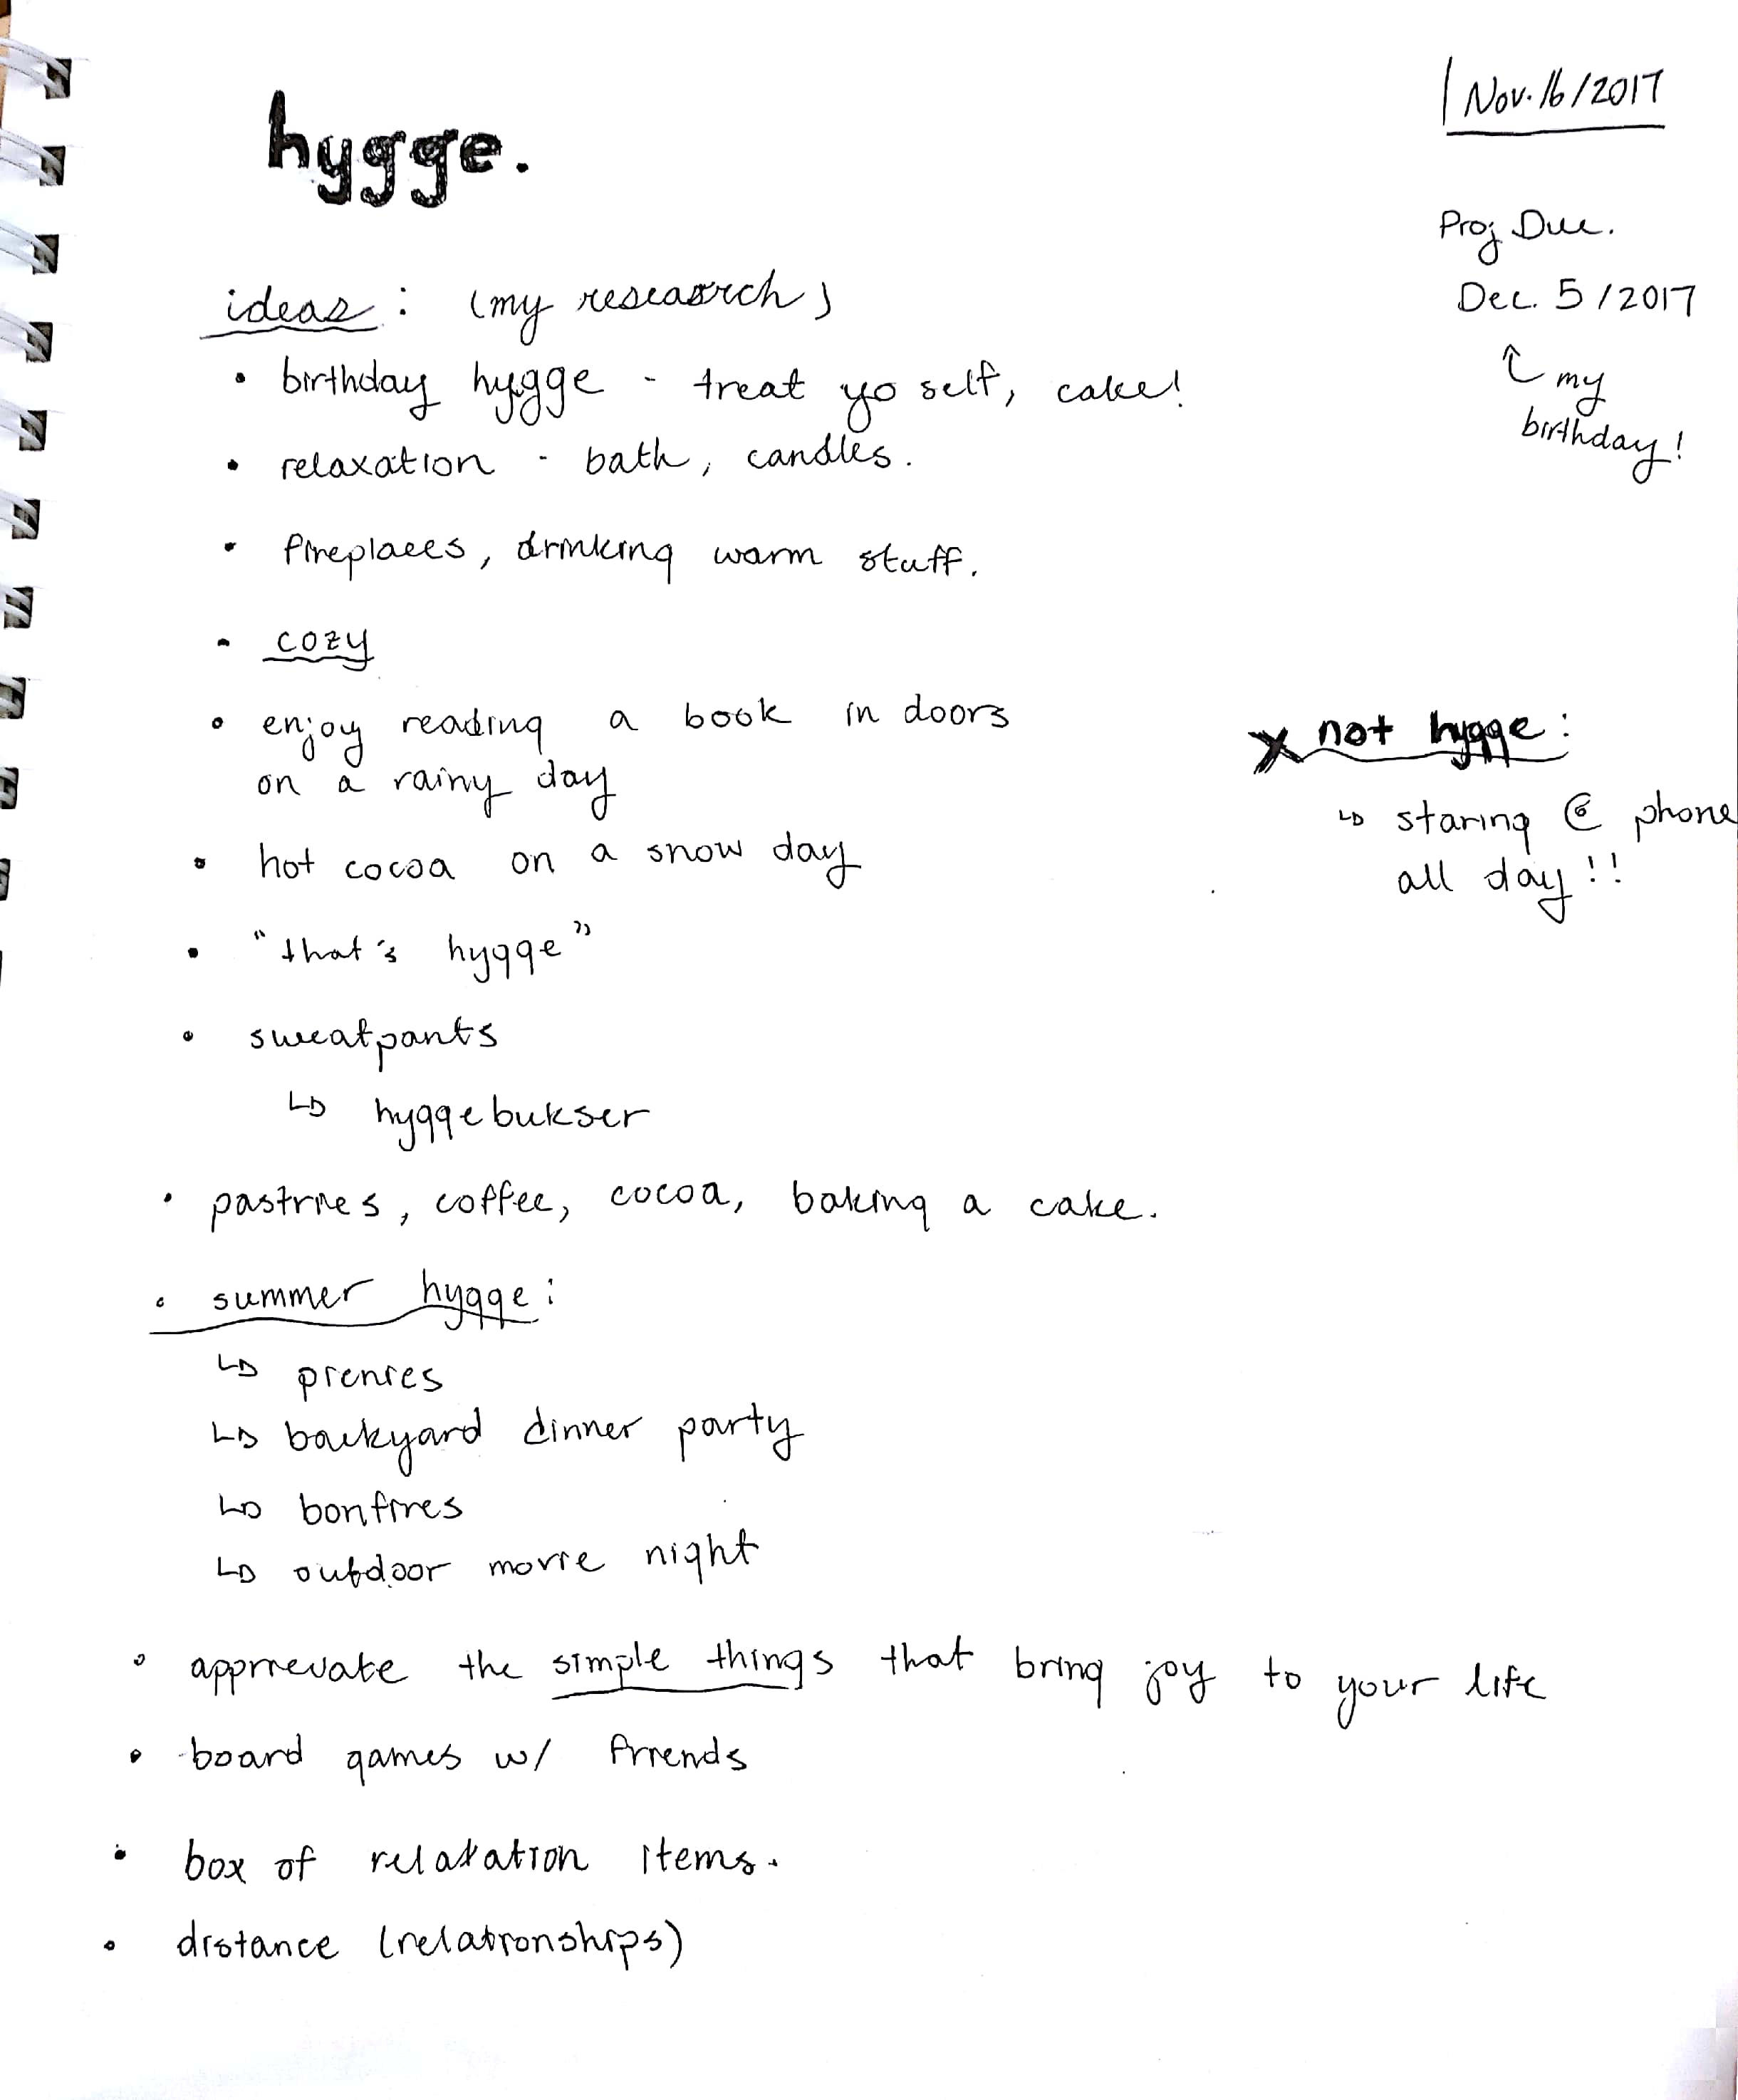 Nov. 16/2017
hygge.
Proj Due.
Dec. 5/2017
my
birthday!
ideas: (my research)
• birthday hygge - treat yo self, cake!
• relaxation - bath, candles.
• fireplaces, drinking warm stuff.
• cozy
• enjoy reading a book in doors
on a rainy day
• hot cocoa on a snow day
• "that's hygge"
• sweatpants
↳ hyggebukser
• pastries, coffee, cocoa, baking a cake.
• summer hygge:
↳ picnics
↳ backyard dinner party
↳ bonfires
↳ outdoor movie night
• appreciate the simple things that bring joy to your life
• board games w/ friends
• box of relaxation items.
• distance (relationships)
X not hygge:
↳ staring @ phone
all day!!